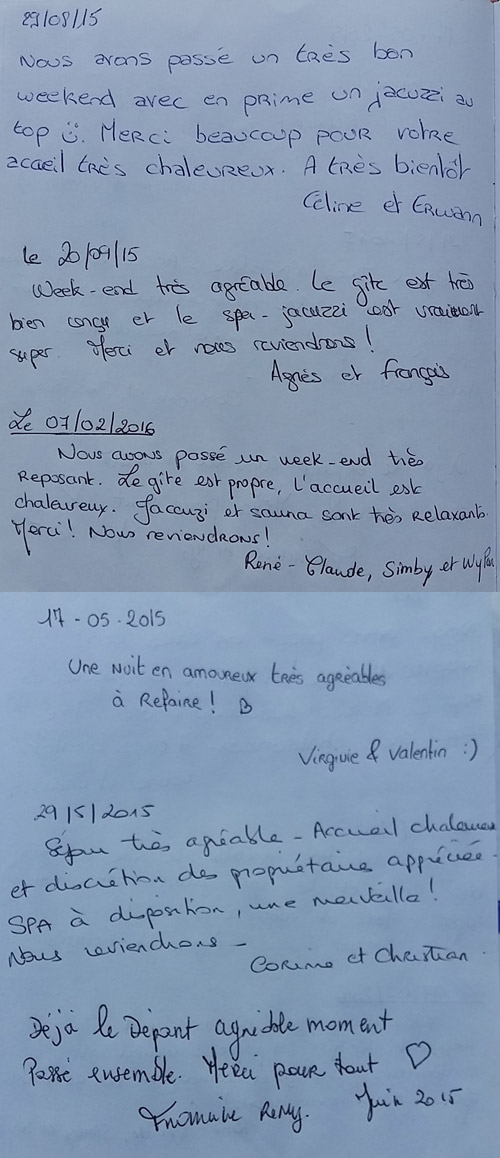 29/08/15
Nous avons passé un très bon
weekend avec en prime un jacuzzi au
top ü. Merci beaucoup pour votre
acaeil très chaleureux. A très bientôt
Céline et Erwann
le 20/09/15
Week-end très agréable. Le gîte est très
bien conçu et le spa-jacuzzi est vraiment
super. Merci et nous reviendrons !
Agnès et François
Le 07/02/2016
Nous avons passé un week-end très
Reposant. Le gîte est propre, l'accueil est
chaleureux. Jaccuzi et sauna sont très relaxants.
Merci ! Nous reviendrons !
René-Claude, Simby et
17-05-2015
Une Nuit en amoureux très agréables
à Refaire ! B
Virginie & Valentin :)
29/5/2015
Séjour très agréable - Accueil chaleureux
et discrétion des propriétaires appréciée -
SPA à disposition, une merveille !
Nous reviendrons -
Corinne et Christian
Déjà le Départ agréable moment
Passé ensemble. Merci pour tout ♡
Remy. Juin 2015